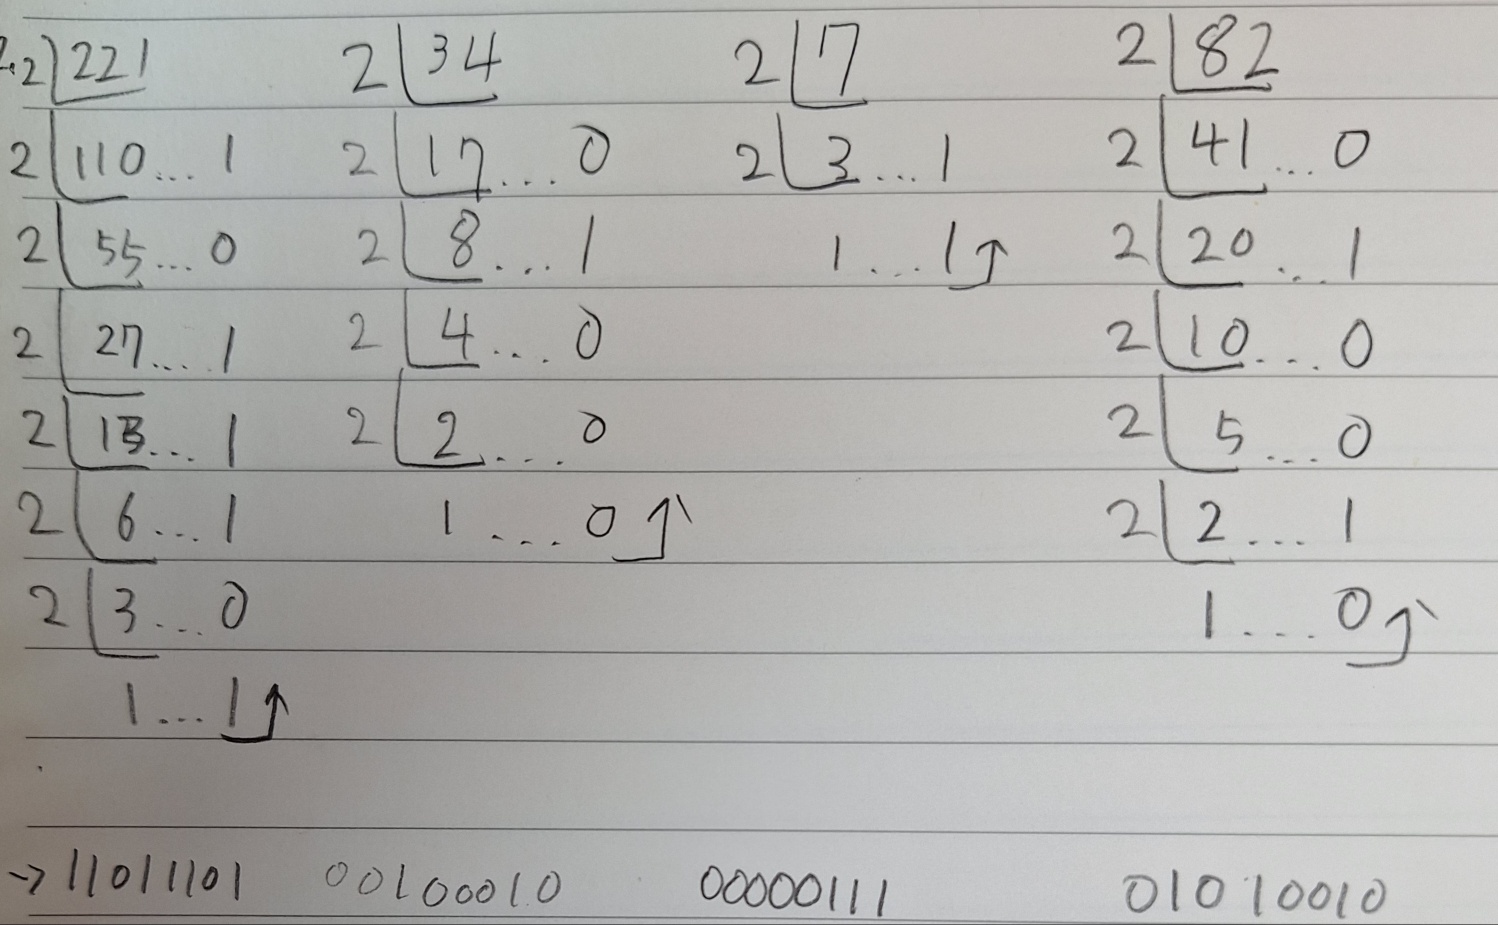 2. 2 221 2 34 2 7 2 82
2 110 ... 1 2 17 ... 0 2 3 ... 1 2 41 ... 0
2 55 ... 0 2 8 ... 1 1 ... 1 ↑ 2 20 ... 1
2 27 ... 1 2 4 ... 0 2 10 ... 0
2 13 ... 1 2 2 ... 0 2 5 ... 0
2 6 ... 1 1 ... 0 ↑ 2 2 ... 1
2 3 ... 0 1 ... 0 ↑
1 ... 1 ↑
→ 11011101 00100010 00000111 01010010